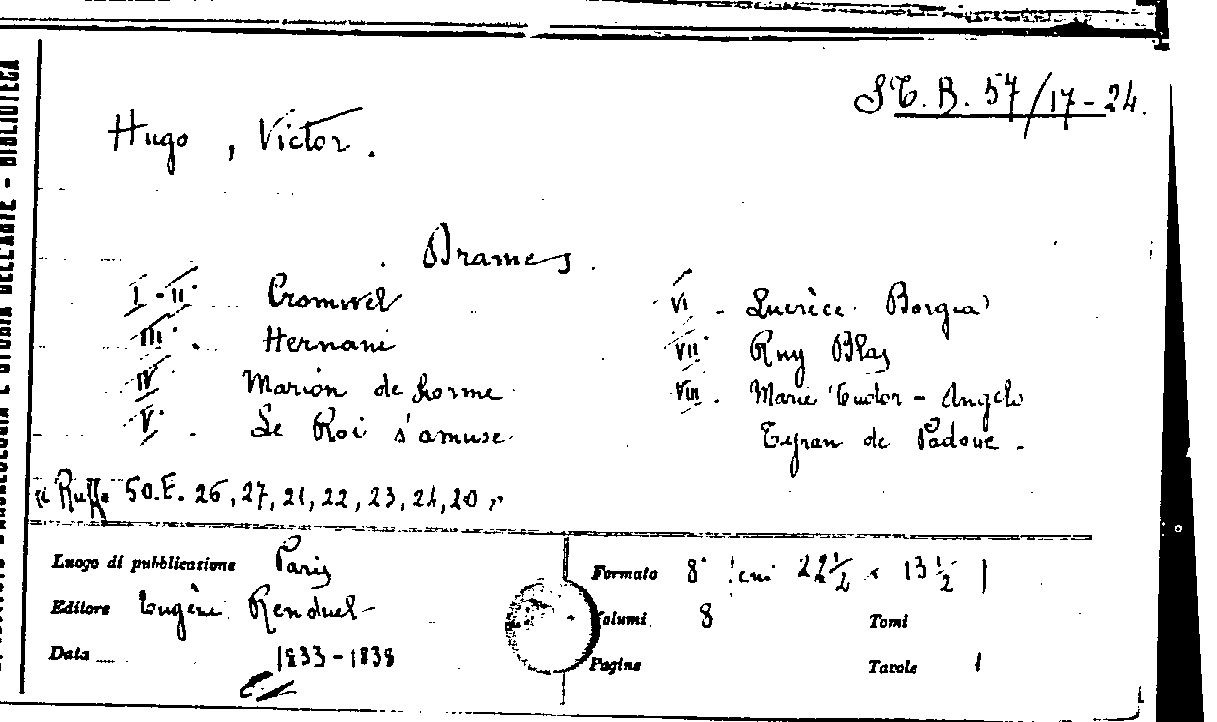 ST. B. 57/17-24.
Hugo, Victor.
Drames.
I-II Cromwel
III. Hernani
IV Marion de Lorme
V. Le Roi s'amuse
VI - Lucrèce Borgia
VII Ruy Blas
VIII. Marie Tudor - Angelo
Tyran de Padoue -
50.E. 26, 27, 21, 22, 23, 24, 20 "
Luogo di pubblicazione Paris
Editore Eugène Renduel
Data 1833-1838
Formato 8° cm 22½ x 13½
Volumi 8
Tomi
Pagine
Tavole 1
ARCHEOLOGIA E STORIA DELL'ARTE - BIBLIOTECA